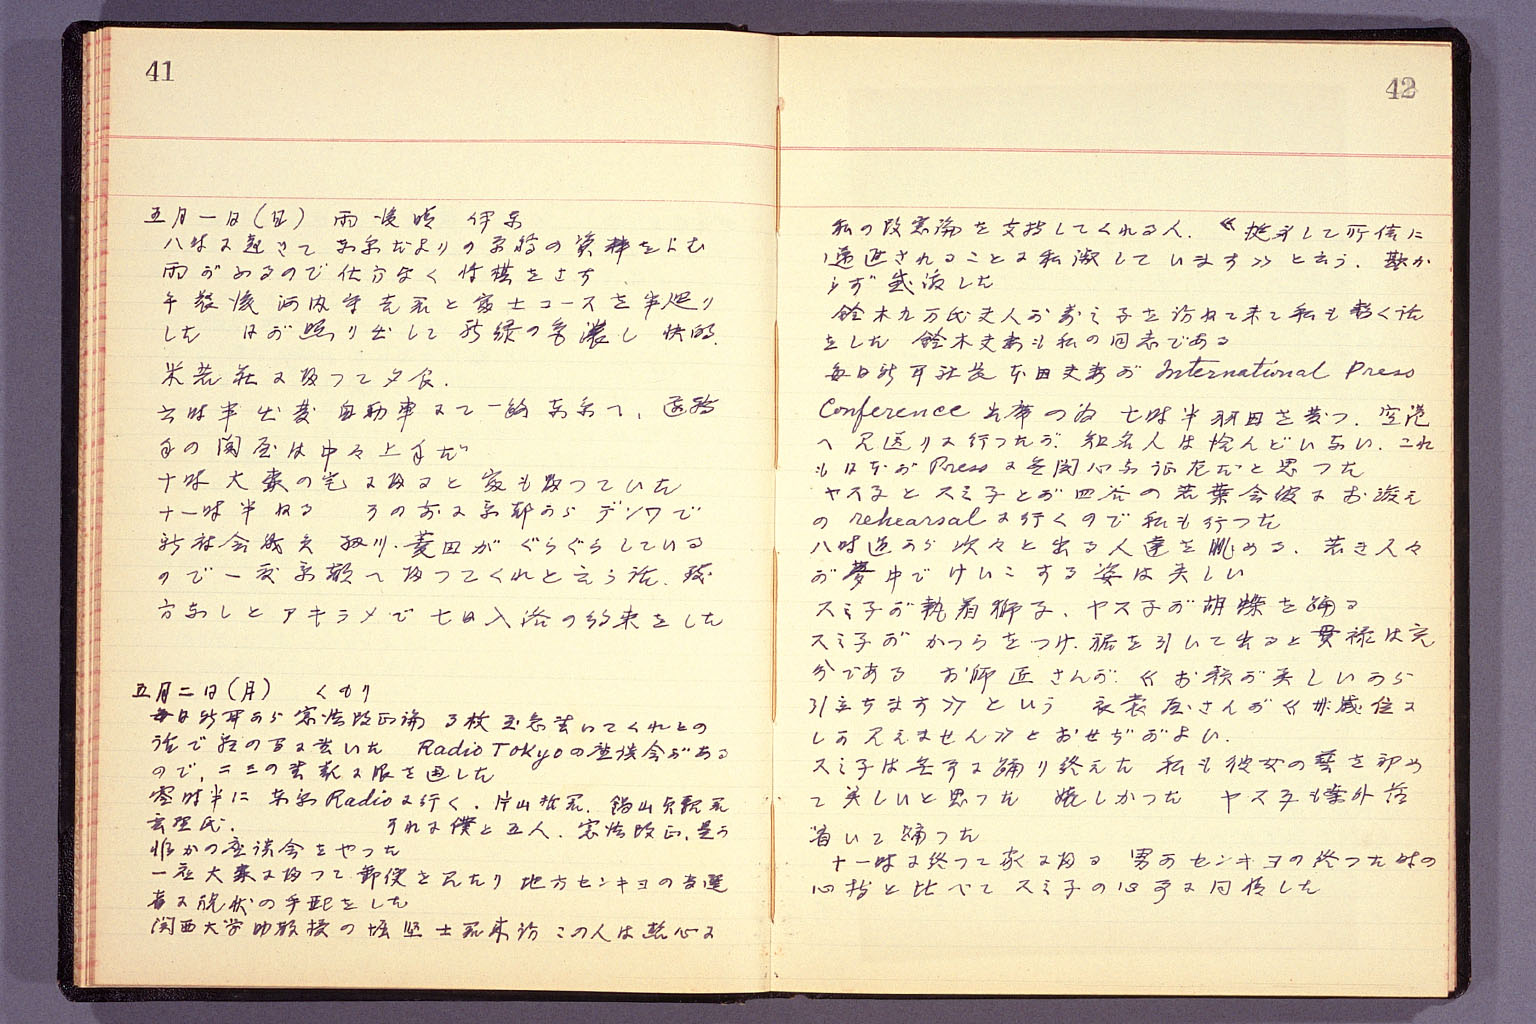 41
五月一日(日) 雨後晴 伊東
八時に起きて
雨がふるので仕方なく将棋をさす
午餐後 河内 君と富士コースを半廻り
した 日が照り出して新緑の香濃し 快晴.
に帰って夕食.
六時半出発 自動車にて一路東京へ,
手の関屋は中々上手だ
十時大森の宅に帰ると も帰っていた
十一時半ねる その前に京都から デンワで
新社会 議員 細川.菱田が ぐらぐらしている
ので一度京都へ帰ってくれと云う話. 致
方なしとアキラメて七日入洛の約束をした
五月二日(月) くもり
毎日新聞から憲法改正論 枚至急書いてくれとの
話で 書いた Radio Tokyoの座談会がある
ので, 二三の書類に眼を通した
零時半に東京Radioに行く. 片山哲君. 鍋山貞親君
氏. それに僕と五人. 憲法改正, 是か
非かの座談会をやった
一応大森に帰って郵便を見たり 地方センキョの当選
者に祝状の手配をした
関西大学助教授の堀堅士君来訪 この人は熱心に
42
私の改憲論を支持してくれる人. 《 して所信に
邁進されることに私淑しています》と云う. 尠か
らず感激した
鈴木九万氏夫人が寿々子を訪ねて来て私も軽く話
をした 鈴木夫妻も私の同志である
毎日新聞社長本田夫妻が International Press
Conference 出席の為 七時半羽田を発つ. 空港
へ見送りに行ったが. 知名人は殆んどいない. これ
も日本がPressに無関心な証左だと思った
ヤス子とスミ子とが四谷の若葉会 にお浚え
の rehearsal に行くので私も行った
八時過から次々と出る人達を眺める. 若き人々
が夢中でけいこする姿は美しい
スミ子が執着獅子, ヤス子が胡蝶を踊る
スミ子がかつらをつけ. 裾を引いて出ると貫禄は充
分である お師匠さんが.《お顔が美しいから
引立ちます》という 衣裳屋さんが《 位に
しか見えません》とおせぢがよい.
スミ子は無事に踊り終えた 私も彼女の藝を初め
て美しいと思った 嬉しかった ヤス子も案外落
着いて踊った
十一時に終って家に帰る 男のセンキョの終った時の
心持と比べて スミ子の心事に同情した